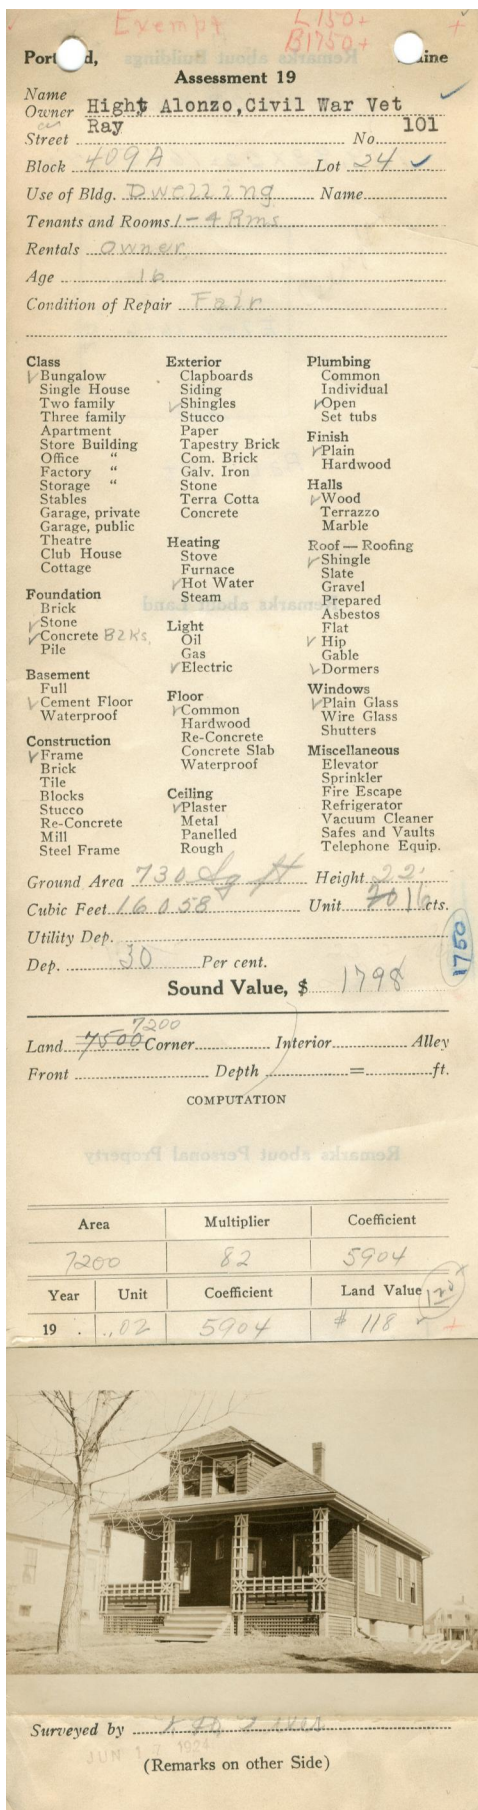 Exempt L150+
B1750+
Portland, Maine
Assessment 19
Name
Owner Hight Alonzo,Civil War Vet
Street Ray No. 101
Block 409A Lot 24
Use of Bldg. Dwelling Name
Tenants and Rooms 1-4 Rms
Rentals Owner
Age 16
Condition of Repair Fair
Class
Bungalow
Single House
Two family
Three family
Apartment
Store Building
Office "
Factory "
Storage "
Stables
Garage, private
Garage, public
Theatre
Club House
Cottage
Foundation
Brick
Stone
Concrete Blks.
Pile
Basement
Full
Cement Floor
Waterproof
Construction
Frame
Brick
Tile
Blocks
Stucco
Re-Concrete
Mill
Steel Frame
Exterior
Clapboards
Siding
Shingles
Stucco
Paper
Tapestry Brick
Com. Brick
Galv. Iron
Stone
Terra Cotta
Concrete
Heating
Stove
Furnace
Hot Water
Steam
Light
Oil
Gas
Electric
Floor
Common
Hardwood
Re-Concrete
Concrete Slab
Waterproof
Ceiling
Plaster
Metal
Panelled
Rough
Plumbing
Common
Individual
Open
Set tubs
Finish
Plain
Hardwood
Halls
Wood
Terrazzo
Marble
Roof — Roofing
Shingle
Slate
Gravel
Prepared
Asbestos
Flat
Hip
Gable
Dormers
Windows
Plain Glass
Wire Glass
Shutters
Miscellaneous
Elevator
Sprinkler
Fire Escape
Refrigerator
Vacuum Cleaner
Safes and Vaults
Telephone Equip.
Ground Area 730 Sq ft Height 22'
Cubic Feet 16058 Unit 20 16 cts.
Utility Dep.
Dep. 30 Per cent.
1750
Sound Value, $ 1798
7200
Land 7500 Corner Interior Alley
Front Depth = ft.
COMPUTATION
Remarks about Personal Property
Area Multiplier Coefficient
7200 82 5904
Year Unit Coefficient Land Value 120
19 . .02 5904 $ 118
Ray
Surveyed by
JUN 17 1924
(Remarks on other Side)